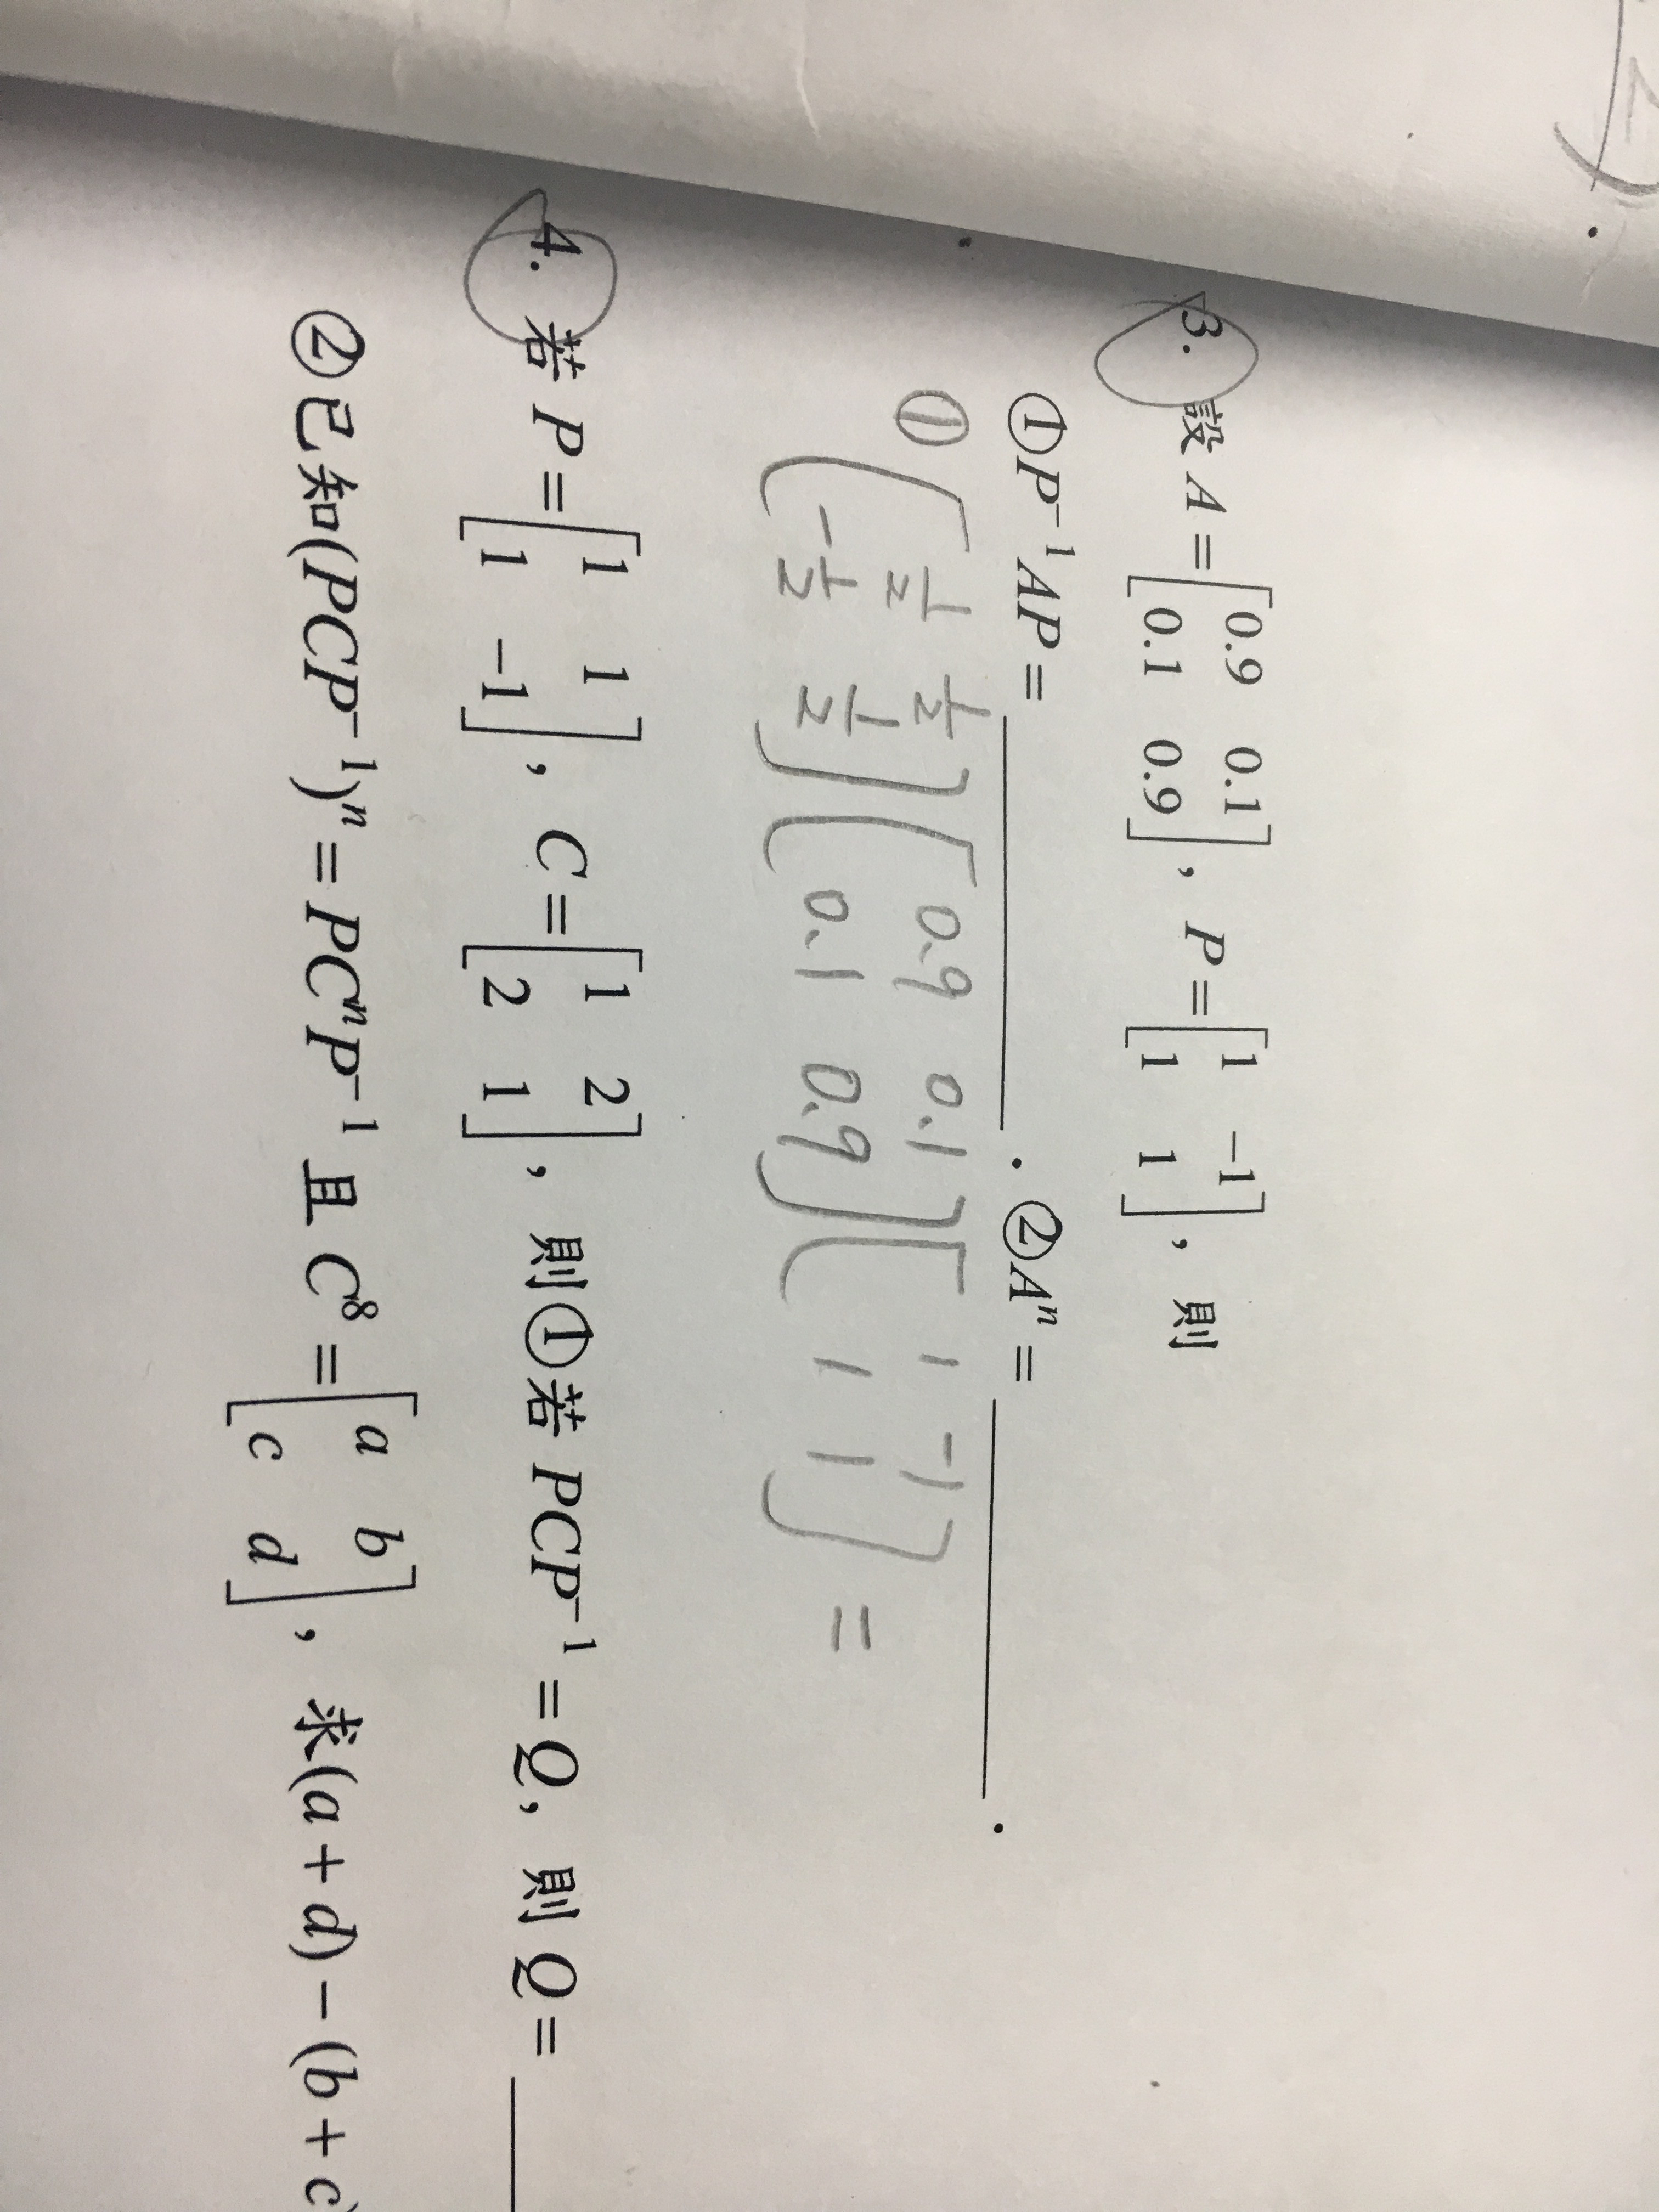 3. 設 A = [0.9 0.1; 0.1 0.9], P = [1 -1; 1 1], 則
①P⁻¹AP = ________. ②Aⁿ = ________.
① [1/2 1/2; -1/2 1/2] [0.9 0.1; 0.1 0.9] [1 -1; 1 1] =
4. 若 P = [1 1; 1 -1], C = [1 2; 2 1], 則①若 PCP⁻¹ = Q, 則 Q = ____
②已知(PCP⁻¹)ⁿ = PCⁿP⁻¹ 且 C⁸ = [a b; c d], 求(a + d) - (b + c)